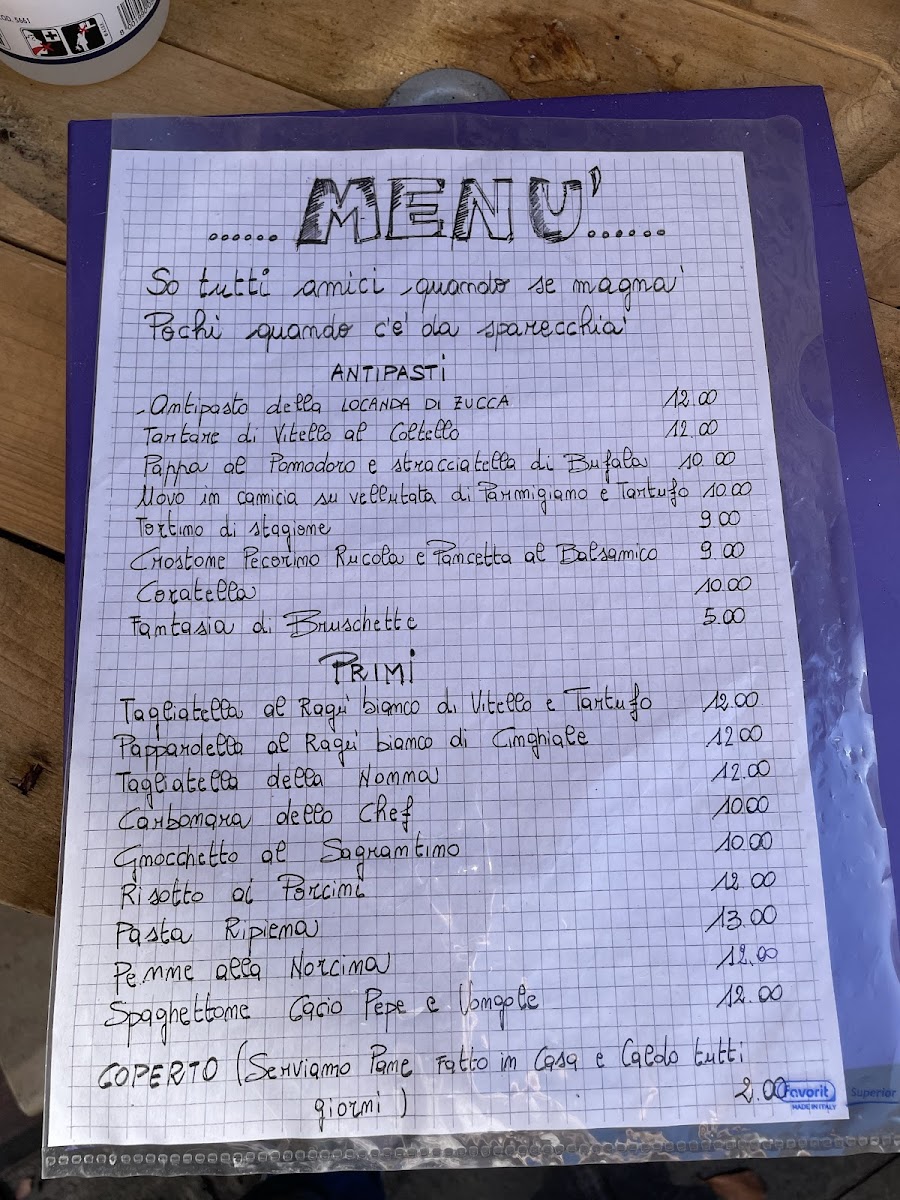 OD. 5661
......MENU'......
So tutti amici quando se magna'
Pochi quando c'e' da sparecchia'
ANTIPASTI
-Antipasto della LOCANDA DI ZUCCA 12.00
Tartare di Vitello al Coltello 12.00
Pappa al Pomodoro e stracciatella di Bufala 10.00
Uovo in camicia su vellutata di Parmigiano e Tartufo 10.00
Tortino di stagione 9.00
Crostone Pecorino Rucola e Pancetta al Balsamico 9.00
Coratella 10.00
Fantasia di Bruschette 5.00
PRIMI
Tagliatella al Ragù bianco di Vitello e Tartufo 12.00
Pappardella al Ragù bianco di Cinghiale 12.00
Tagliatella della Nonna 12.00
Carbonara dello Chef 10.00
Gnocchetto al Sagrantino 10.00
Risotto ai Porcini 12.00
Pasta Ripiena 13.00
Penne alla Norcina 12.00
Spaghettone Cacio Pepe e Vongole 12.00
COPERTO (Serviamo Pane Fatto in Casa e Caldo tutti
giorni) 2.00
Favorit Superior
MADE IN ITALY